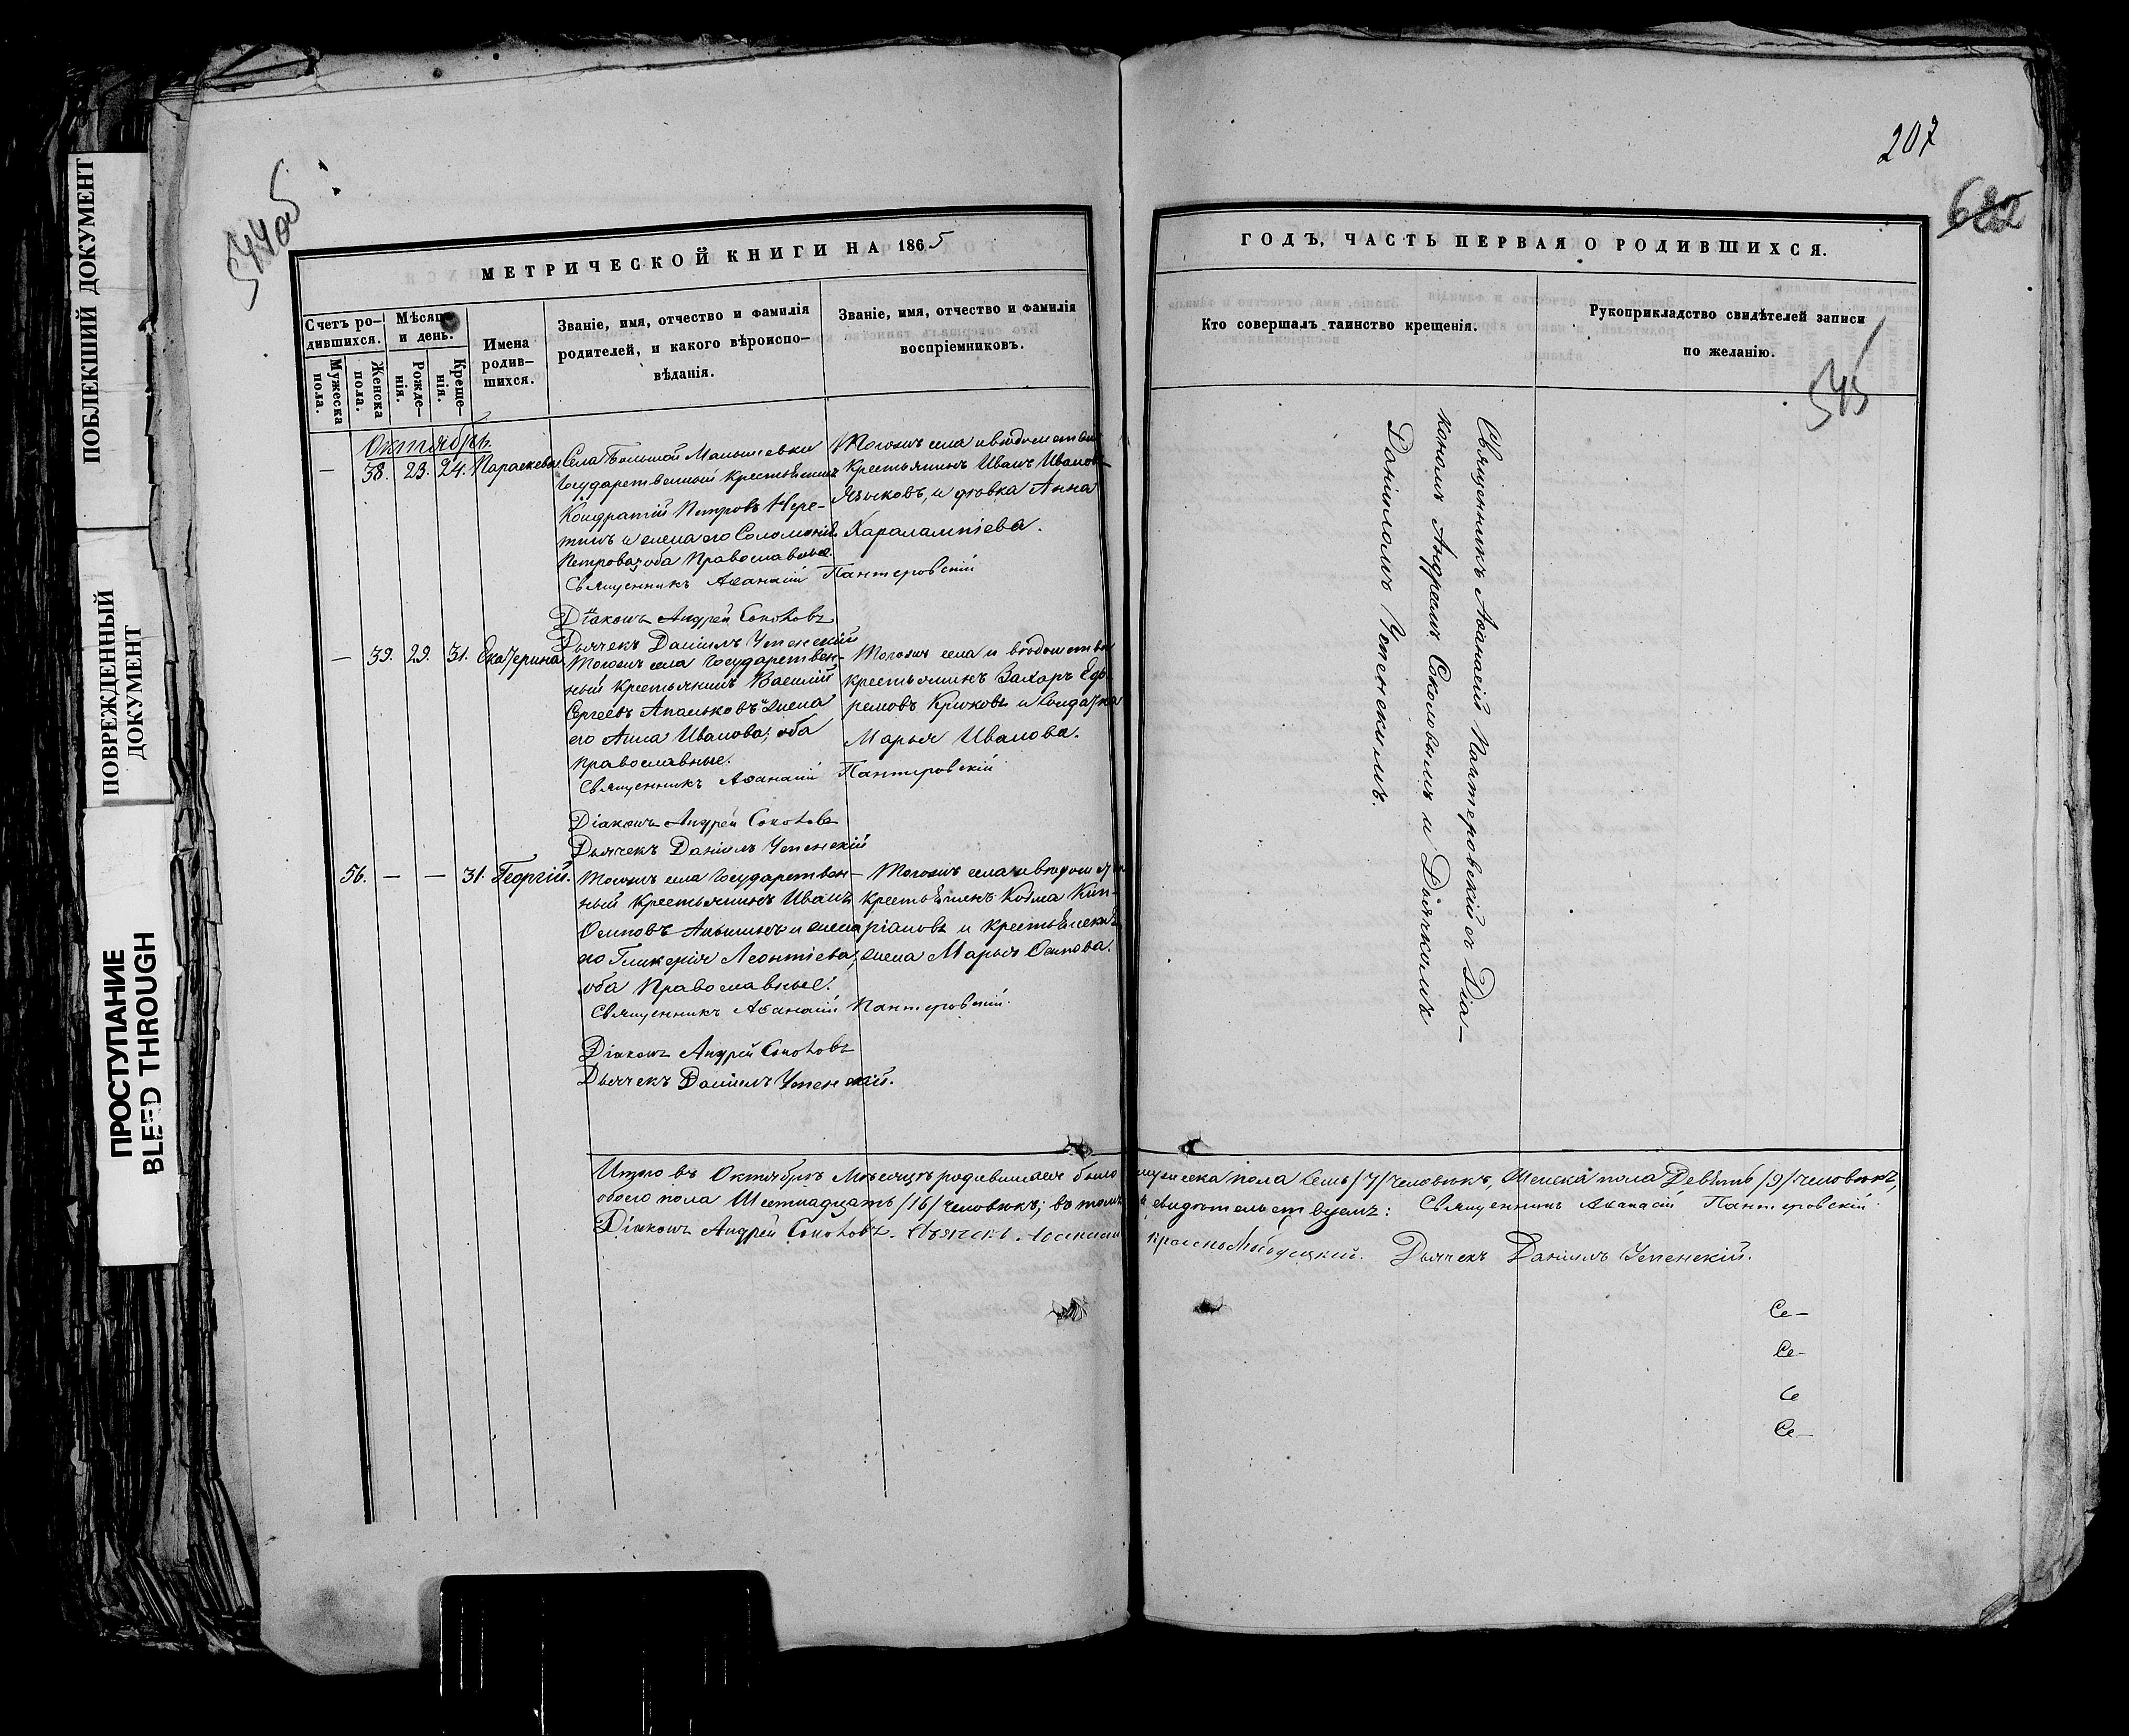 ПОБЛЕКШИЙ ДОКУМЕНТ
ПОВРЕЖДЕННЫЙ
ДОКУМЕНТ
ПРОСТУПАНИЕ
BLEED THROUGH
544об
МЕТРИЧЕСКОЙ КНИГИ НА 1865
Счетъ ро-
дившихся.
Мужеска
пола.
Женска
пола.
Мѣсяцъ
и день.
Рожде-
нія.
Креще-
нія.
Имена
родив-
шихся.
Званіе, имя, отчество и фамилія
родителей, и какого вѣроиспо-
вѣданія.
Званіе, имя, отчество и фамилія
воспріемниковъ.
Октябрь.
— 38. 23. 24. Параскева.
Села Большой
Государственный крестьянинъ
Кондратій Петровъ Чере-
и жена его Соломонія
Петрова, оба Православные.
Тогожъ села и вѣдомства
Крестьянинъ Иванъ Ивановъ
Языковъ, и дѣвка Анна
Харалампіева.
Священникъ Аѳанасій Пантеровскій
Діаконъ Андрей Соколовъ
Дьячекъ Даніилъ Успенскій
— 39. 29. 31. Екатерина.
Тогожъ села Государствен-
ный Крестьянинъ Василій
Сергеевъ Апальковъ и жена
его Анна Иванова; оба
Православные.
Тогожъ села и вѣдомства
крестьянинъ Захаръ Еф-
ремовъ Крюковъ и Солдатка
Марья Иванова.
Священникъ Аѳанасій Пантеровскій
Діаконъ Андрей Соколовъ
Дьячекъ Даніилъ Успенскій
56. — — 31. Георгій.
Тогожъ села Государствен-
ный Крестьянинъ Иванъ
Осиповъ и жена
его Гликерія Леонтіева;
оба Православные.
Тогожъ села и вѣдомства
крестьянинъ Козма Кип-
ріановъ и крестьянская
жена Марья Осипова.
Священникъ Аѳанасій Пантеровскій.
Діаконъ Андрей Соколовъ
Дьячекъ Даніилъ Успенскій.
207
682
ГОДЪ, ЧАСТЬ ПЕРВАЯ О РОДИВШИХСЯ.
Кто совершалъ таинство крещенія.
Рукоприкладство свидѣтелей записи
по желанію.
545
Священникъ Аѳанасій Пантеровскій съ Діа-
кономъ Андреемъ Соколовымъ и Дьячкомъ
Даніиломъ Успенскимъ.
Итого въ Октябрѣ Мѣсяцѣ родившихся было мужеска пола Семь /7/ человѣкъ, Женска пола Девять /9/ человѣкъ,
обоего пола Шестнадцать /16/ человѣкъ; въ томъ и свидѣтельствуемъ: Священникъ Аѳанасій Пантеровскій
Діаконъ Андрей Соколовъ. Дьячекъ Дьячекъ Даніилъ Успенскій.
Се—
Се-
Се
Се—